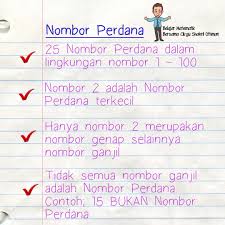 Nombor Perdana
Belajar Matematik
Bersama Cikgu Shakril Othman
25 Nombor Perdana dalam
lingkungan nombor 1 - 100
Nombor 2 adalah Nombor
Perdana terkecil
Hanya nombor 2 merupakan
nombor genap selainnya
nombor ganjil
Tidak semua nombor ganjil
adalah Nombor Perdana
Contoh, 15 BUKAN Nombor
Perdana